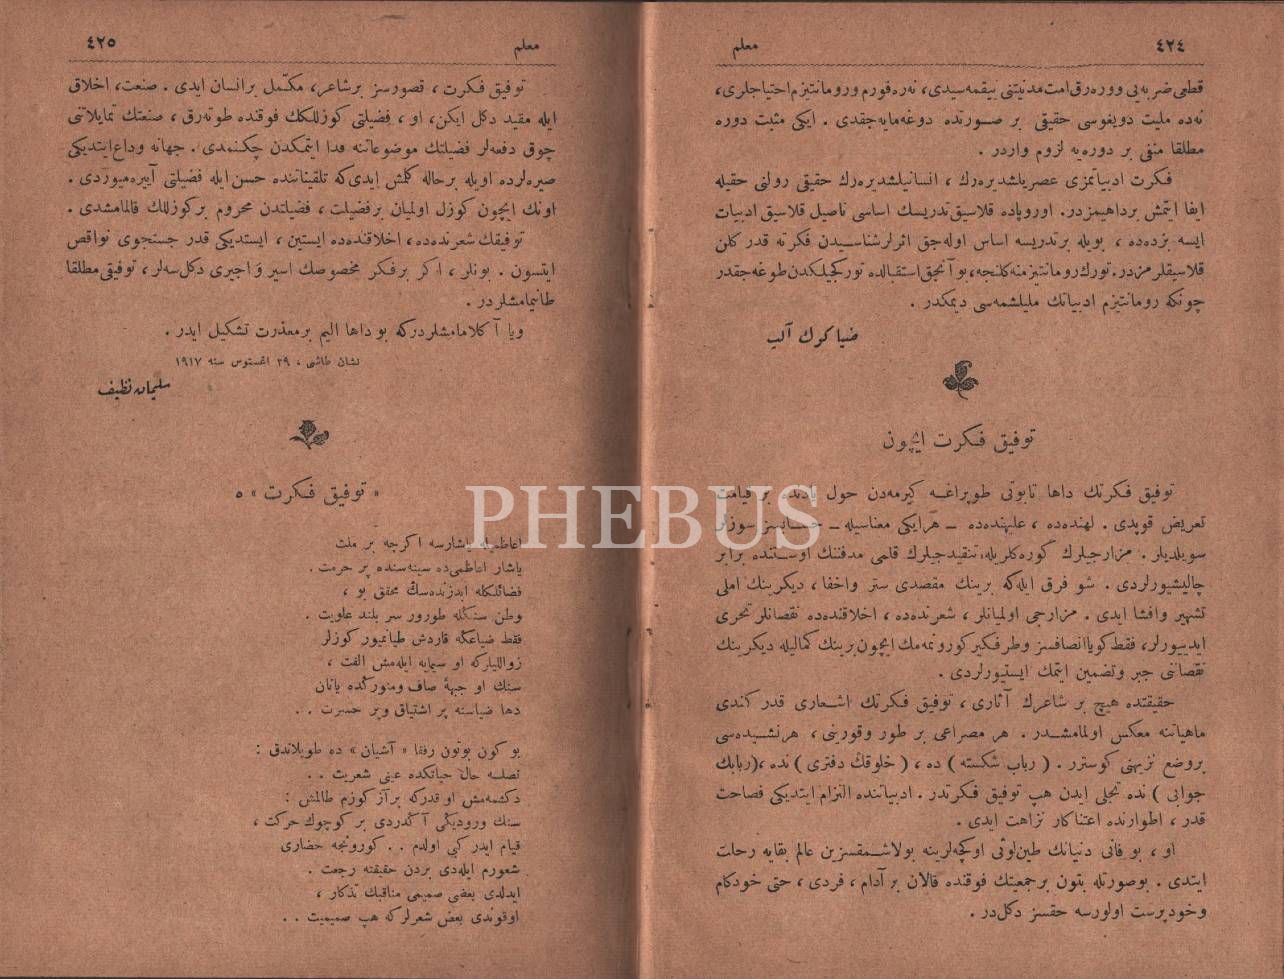 ٤٢٤
معلم
قطعی ضربه‌یی ووره‌رق امت مدنیتنی ییقمه‌سیدی، نه‌ره‌فورم ورومانتیزم احتیاجلری،
نه‌ده ملیت دویغوسی حقیقی بر صورتده دوغه‌مایه‌جقدی . ایکی مثبت دوره
مطلقا منفی بر دوره‌یه لزوم واردر .
فکرت ادبیاتمزی عصریلشدیره‌رك ، انسانیلشدیره‌رك حقیقی رولنی حقیله
ایفا ایتمش برداهیمزدر. اوروپاده قلاسیق تدریسك اساسی ناصیل قلاسیق ادبیات
ایسه بزده‌ده ، بویله برتدریسه اساس اوله‌جق اثرلر شناسیدن فکرته قدر کلن
قلاسیقلرمزدر. تورك رومانتیزمنه کلنجه، بو آنجق استقبالده تورکجیلکدن طوغه‌جقدر
چونکه رومانتیزم ادبیاتك ملیلشمه‌سی دیمکدر .
ضیا کوك آلپ
توفیق فکرت ایچون
توفیق فکرتك داها تابوتی طوپراغه کیرمه‌دن حول یادنده بر قیامت
تعریض قوپدی . لهنده‌ده ، علیهنده‌ده ــ هرایکی معناسیله ــ حسابسز سوزلر
سویلدیلر . مزارجیلرك کوره‌کلریله، تنقیدجیلرك قلمی مدفننك اوستنده برابر
چالیشیورلردی . شو فرق ایله‌که برینك مقصدی ستر واخفا ، دیکرینك املی
تشهیر وافشا ایدی . مزارجی اولمیانلر ، شعرنده‌ده ، اخلاقنده‌ده نقصانلر تحری
ایدییورلر، فقط کویا انصافسز وطرفکیر کورونمه‌مك ایچون برینك کمالیله دیکرینك
نقصاننی جبر وتضمین ایتمك ایستیورلردی .
حقیقتده هیچ بر شاعرك آثاری ، توفیق فکرتك اشعاری قدر کندی
ماهیاتنه معکس اولمامشدر . هر مصراعی بر طور وقورینی ، هرنشیده‌سی
بروضع نزیهنی کوسترر . ( رباب شکسته ) ده ، ( خلوقك دفتری ) نده ،(ربابك
جوابی ) نده تجلی ایدن هپ توفیق فکرتدر . ادبیاتنده التزام ایتدیکی فصاحت
قدر ، اطوارنده اعتناکار نزاهت ایدی .
او ، بو فانی دنیانك طین لوثی اوکچه‌لرینه بولاشمقسزین عالم بقایه رحلت
ایتدی . بوصورتله بتون برجمعیتك فوقنده قالان بر آدام ، فردی ، حتی خودکام
وخودپرست اولورسه حقسز دکل‌در .
٤٢٥
معلم
توفیق فکرت ، قصورسز برشاعر، مکتمل برانسان ایدی . صنعت، اخلاق
ایله مقید دکل ایکن، او ، فضیلتی کوزللكك فوقنده طوته‌رق ، صنعتك تمایلاتنی
چوق دفعه‌لر فضیلتك موضوعاتنه فدا ایتمکدن چکنمدی . جهانه وداع ایتدیکی
صیره‌لرده اویله برحاله کلمش ایدی‌که تلقیناتنده حسن ایله فضیلتی آییره‌میوردی .
اونك ایچون کوزل اولمیان برفضیلت ، فضیلتدن محروم برکوزللك قالمامشدی .
توفیقك شعرنده‌ده ، اخلاقنده‌ده ایستین ، ایستدیکی قدر جستجوی نواقص
ایتسون . بونلر ، اکر برفکر مخصوصك اسیر و اجیری دکل‌سه‌لر ، توفیقی مطلقا
طانیمامشلردر .
ویا آ کلامامشلردرکه بو داها الیم برمعذرت تشکیل ایدر .
نشان طاشی ، ٢٩ اغستوس سنه ١٩١٧
سلیمان نظیف
« توفیق فکرت » ه
یاشارسه اکرچه بر ملت
یاشار اعاظمی‌ده سینه‌سنده پر حرمت .
فضائلکله ابدزنده‌سك محقق بو ،
وطن سنکله طورور سر بلند علویت .
فقط ضیاعکه قاردش طیانمیور کوزلر
زواللیلرکه او سیمایه ایله‌مش الفت ،
سنك او جبهۀ صاف ومنورکده یانان
دها ضیاسنه پر اشتیاق وپر حسرت . .
بو کون بوتون رفقا « آشیان » ده طوپلاندق :
نصلسه حال حیاتکده عینی شعریت . .
دکشمه‌مش او قدرکه بر آز کوزم طالمش :
سنك ورودیکی آ کدردی بر کوچوك حرکت ،
قیام ایدر کبی اولدم . . کورونجه حضاری
شعورم ایله‌دی بردن حقیقته رجعت .
ایدلدی بعضی صمیمی مناقبك تذکار ،
اوقوندی بعض شعرلرکه هپ صمیمیت . .
PHEBUS